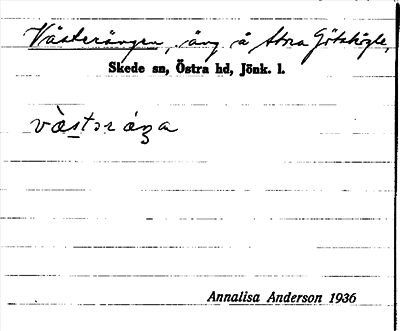 Västerängen, äng å Stora Götshögle,
Skede sn, Östra hd, Jönk. l.
væ̀stəráŋa
Annalisa Anderson 1936